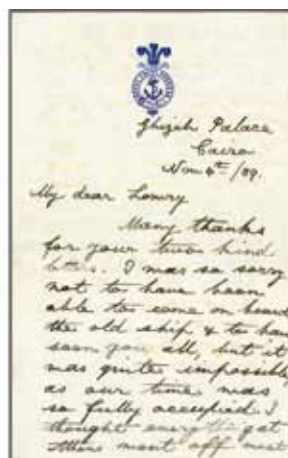 Ghizeh Palace
Cairo
Nov 4th/89.
My dear Lowry
Many thanks
for your two kind
letters. I was so sorry
not to have been
able to come on board
the old ship & to have
seen you all, but it
was quite impossible
as our time was
so fully occupied. I
thought everything
went off most